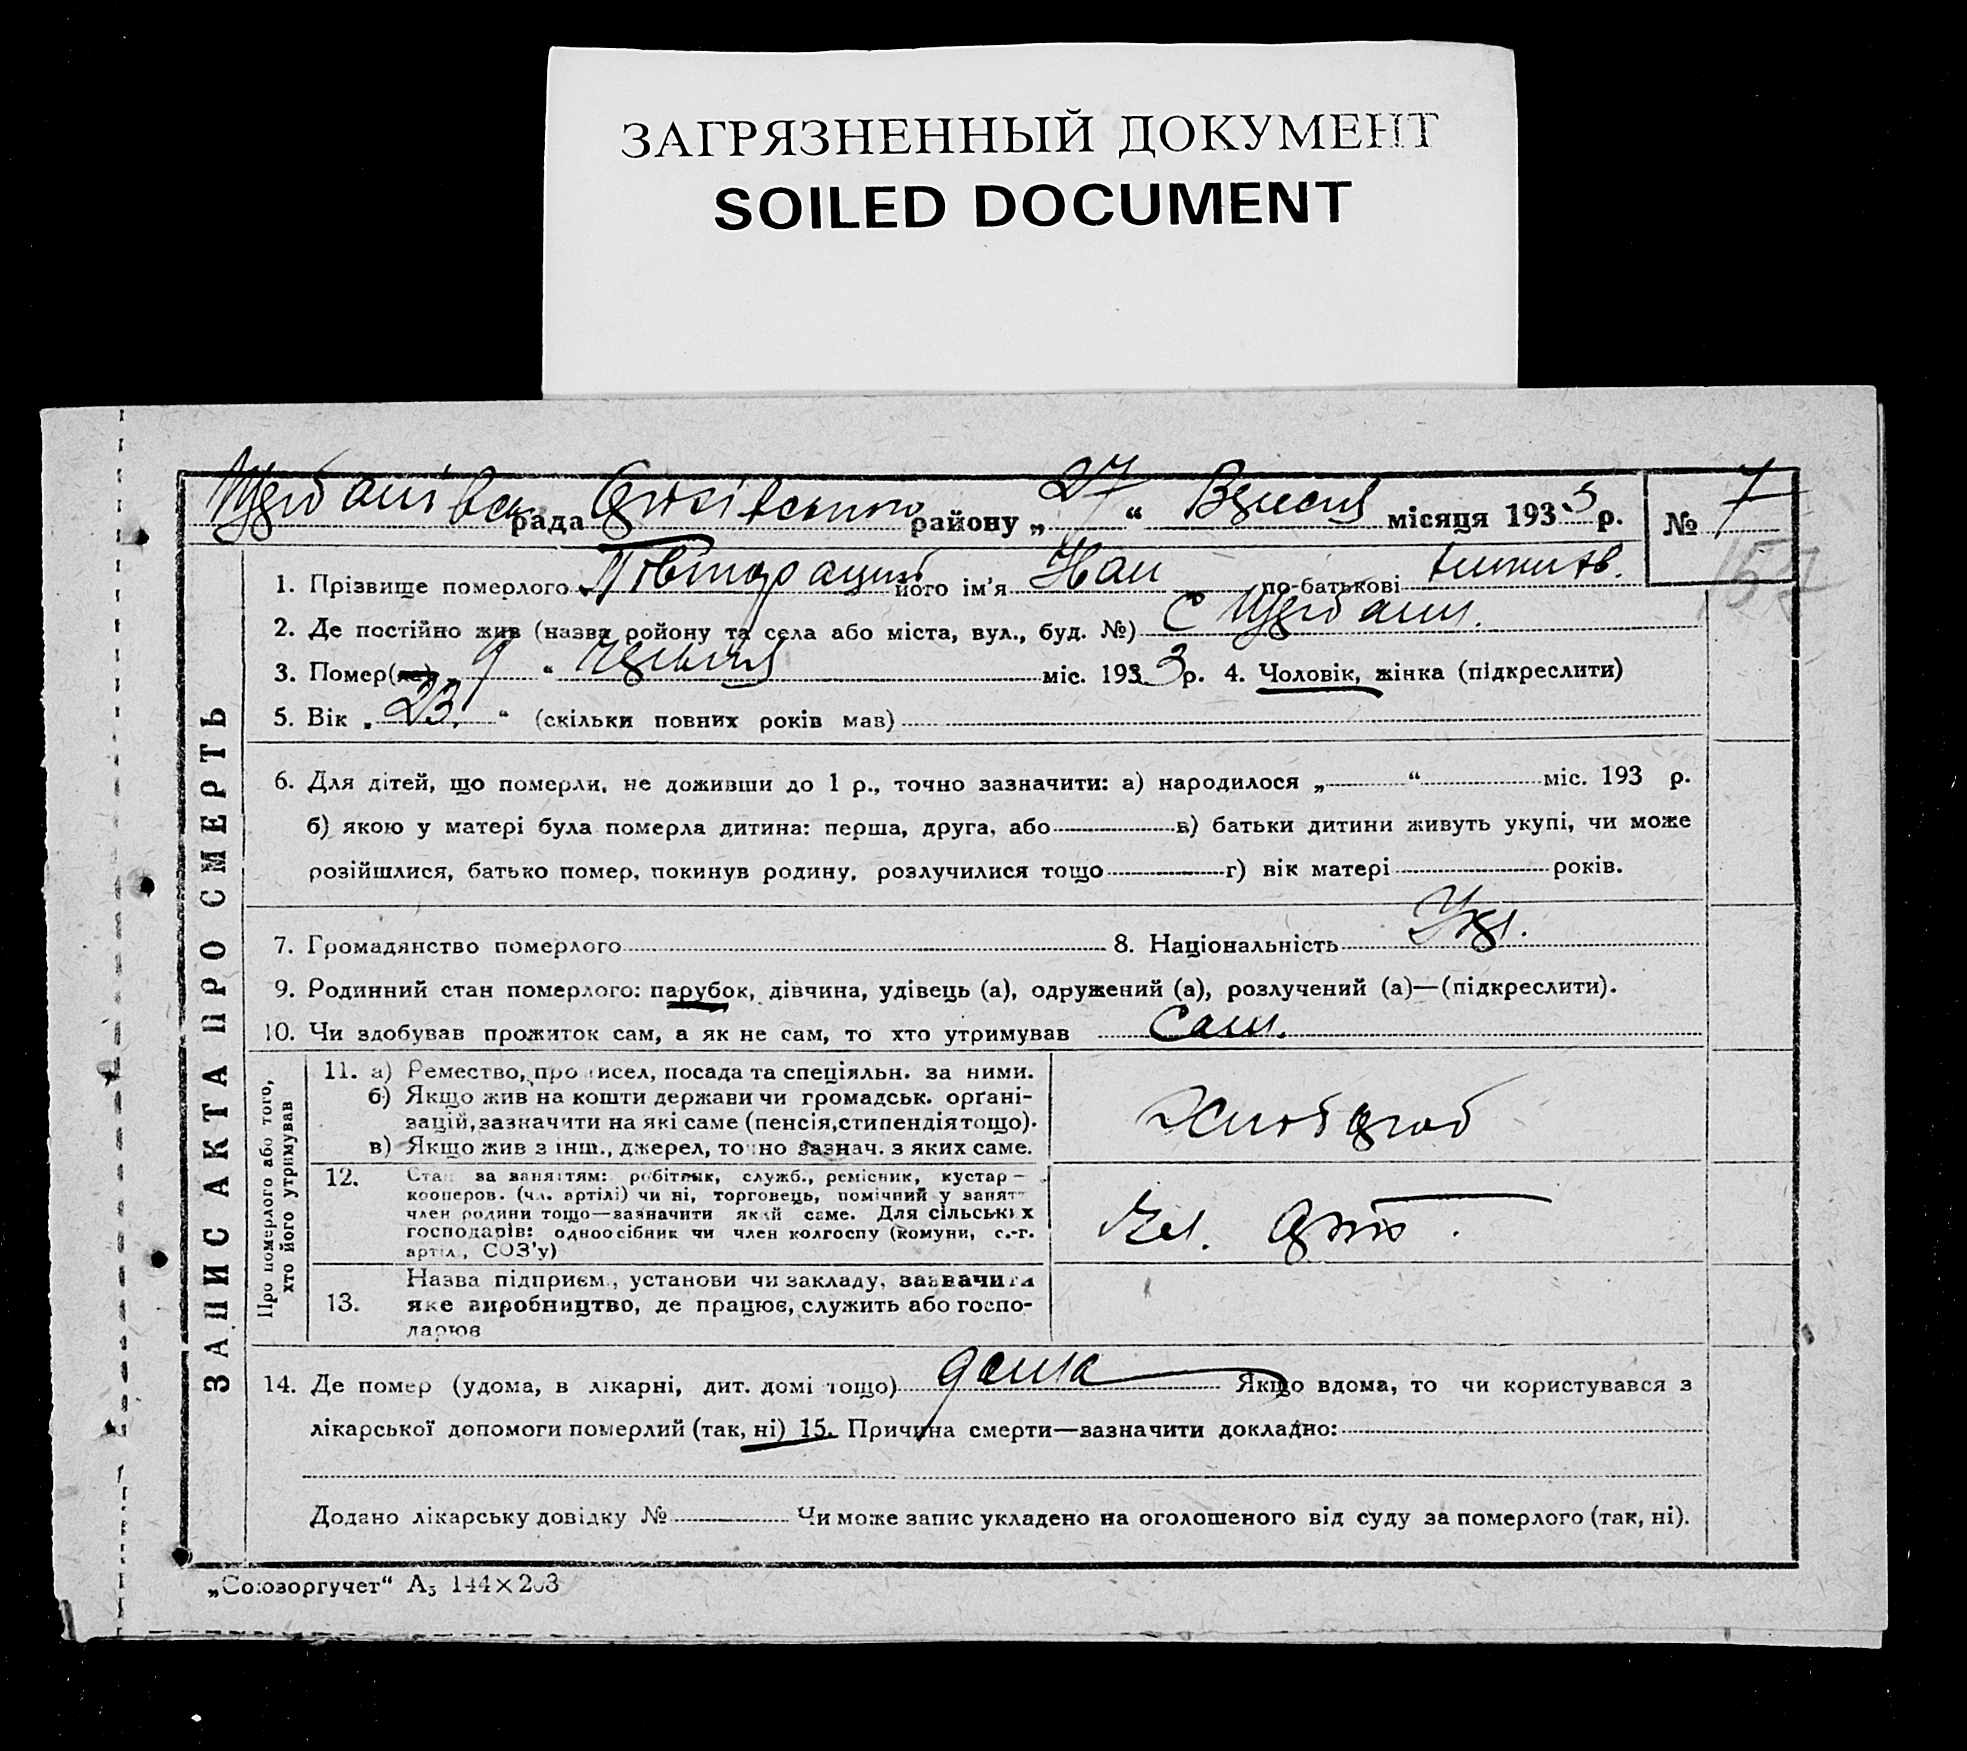 ЗАГРЯЗНЕННЫЙ ДОКУМЕНТ
SOILED DOCUMENT
рада району „27“ Вересня місяця 1933 р. № 7
1. Прізвище померлого його ім'я по-батькові
2. Де постійно жив (назва ройону та села або міста, вул., буд. №) с
3. Помер(ла) „9“ червня міс. 1933 р. 4. Чоловік, жінка (підкреслити)
5. Вік „23.“ (скільки повних років мав)
6. Для дітей, що померли, не доживши до 1 р., точно зазначити: а) народилося „ “ міс. 193 р.
б) якою у матері була померла дитина: перша, друга, або в) батьки дитини живуть укупі, чи може
розійшлися, батько помер, покинув родину, розлучилися тощо г) вік матері років.
7. Громадянство померлого 8. Національність Укр.
9. Родинний стан померлого: парубок, дівчина, удівець (а), одружений (а), розлучений (а)—(підкреслити).
10. Чи здобував прожиток сам, а як не сам, то хто утримував Сам.
11. а) Ремество, промисел, посада та спеціяльн. за ними.
б) Якщо жив на кошти держави чи громадськ. орґані-
зацій, зазначити на які саме (пенсія, стипендія тощо).
в) Якщо жив з інш., джерел, точно зазнач. з яких саме.
Хлібороб
12. Стан за заняттям: робітник, служб., ремісник, кустар—
кооперов. (чл. артілі) чи ні, торговець, помічний у занятт
член родини тощо—зазначити який саме. Для сільських
господарів: одноосібник чи член колгоспу (комуни, с.-г.
артіл., СОЗ'у)
13. Назва підприєм., установи чи закладу, зазначити
яке виробництво, де працює, служить або госпо-
дарює
14. Де помер (удома, в лікарні, дит. домі тощо) дома Якщо вдома, то чи користувався з
лікарської допомоги померлий (так, ні) 15. Причина смерти—зазначити докладно:
Додано лікарську довідку № Чи може запис укладено на оголошеного від суду за померлого (так, ні).
ЗАПИС АКТА ПРО СМЕРТЬ
Про померлого або того,
хто його утримував
„Союзоргучет“ А5 144×203